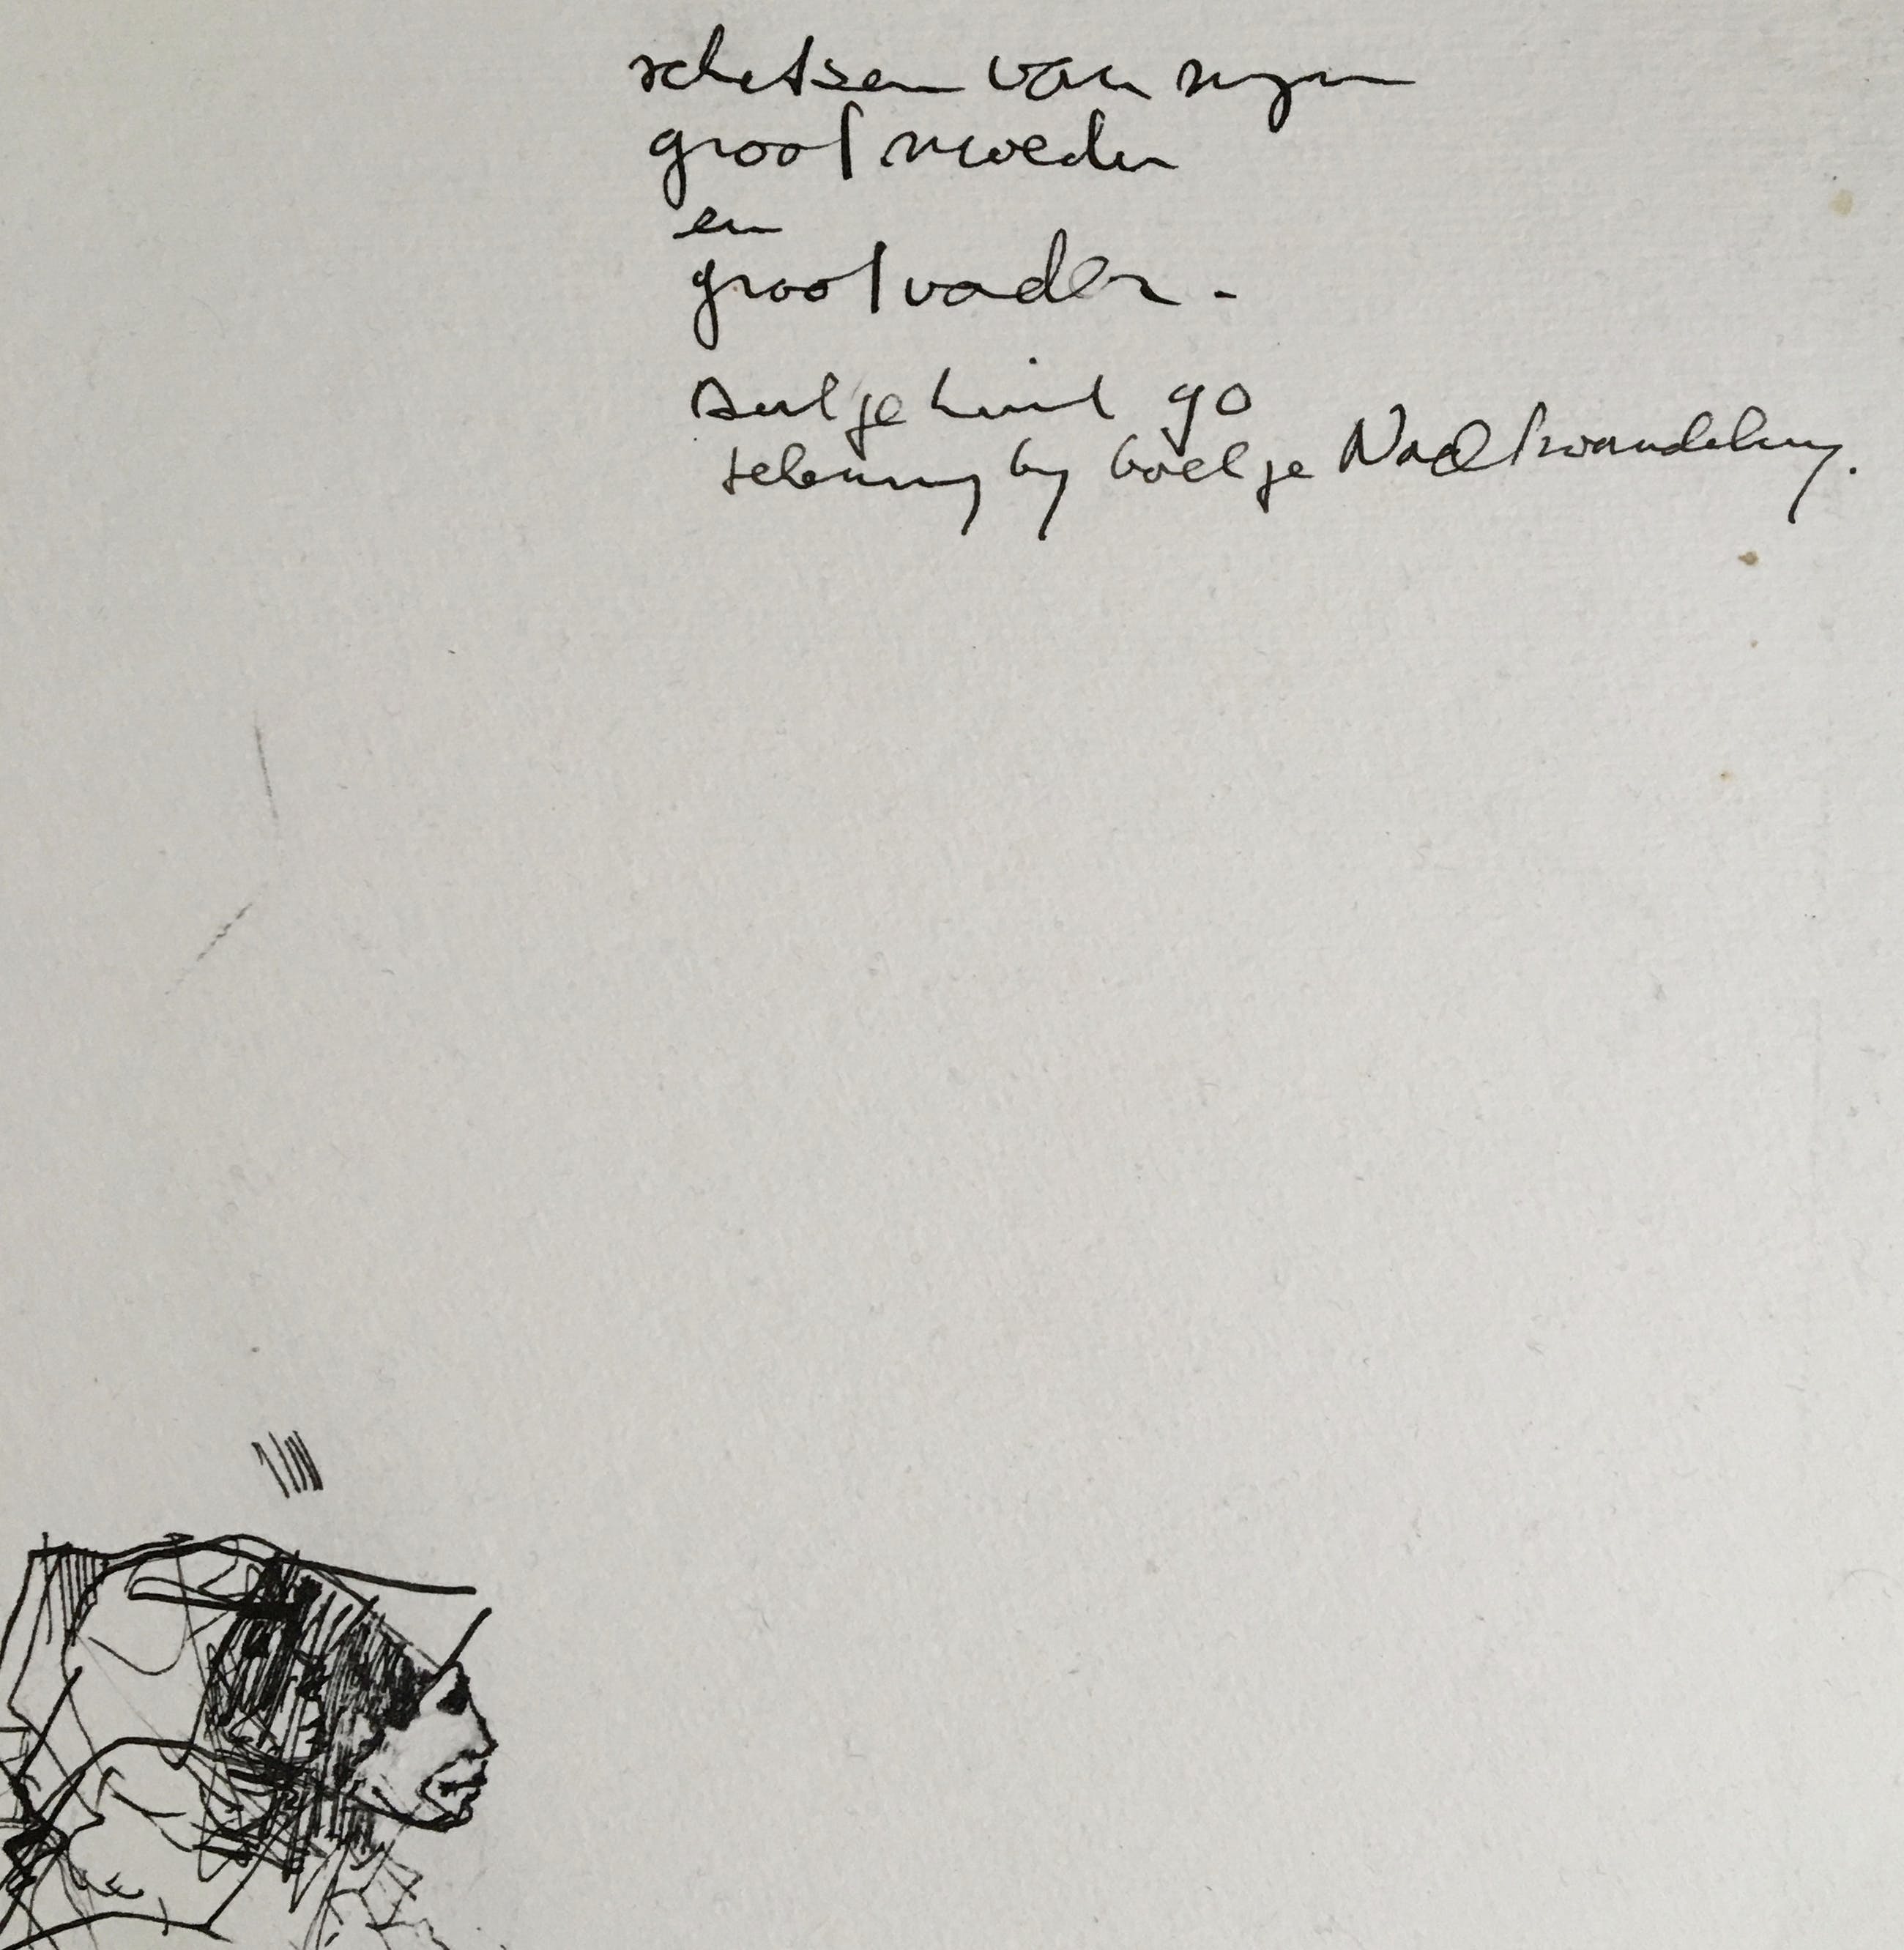 schetsen van mijn
grootmoeder
en
grootvader.
90
tekening bij boekje Nachtwandeling.